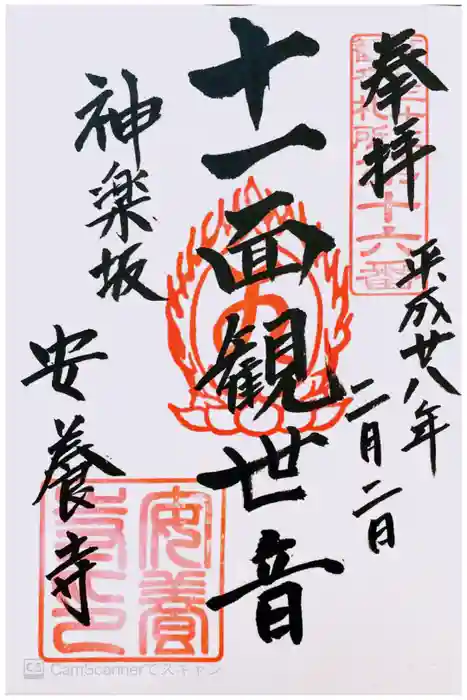 奉拝
平成廿八年
二月二日
十一面観世音
神楽坂
安養寺
安養
寺印
CS CamScannerでスキャン